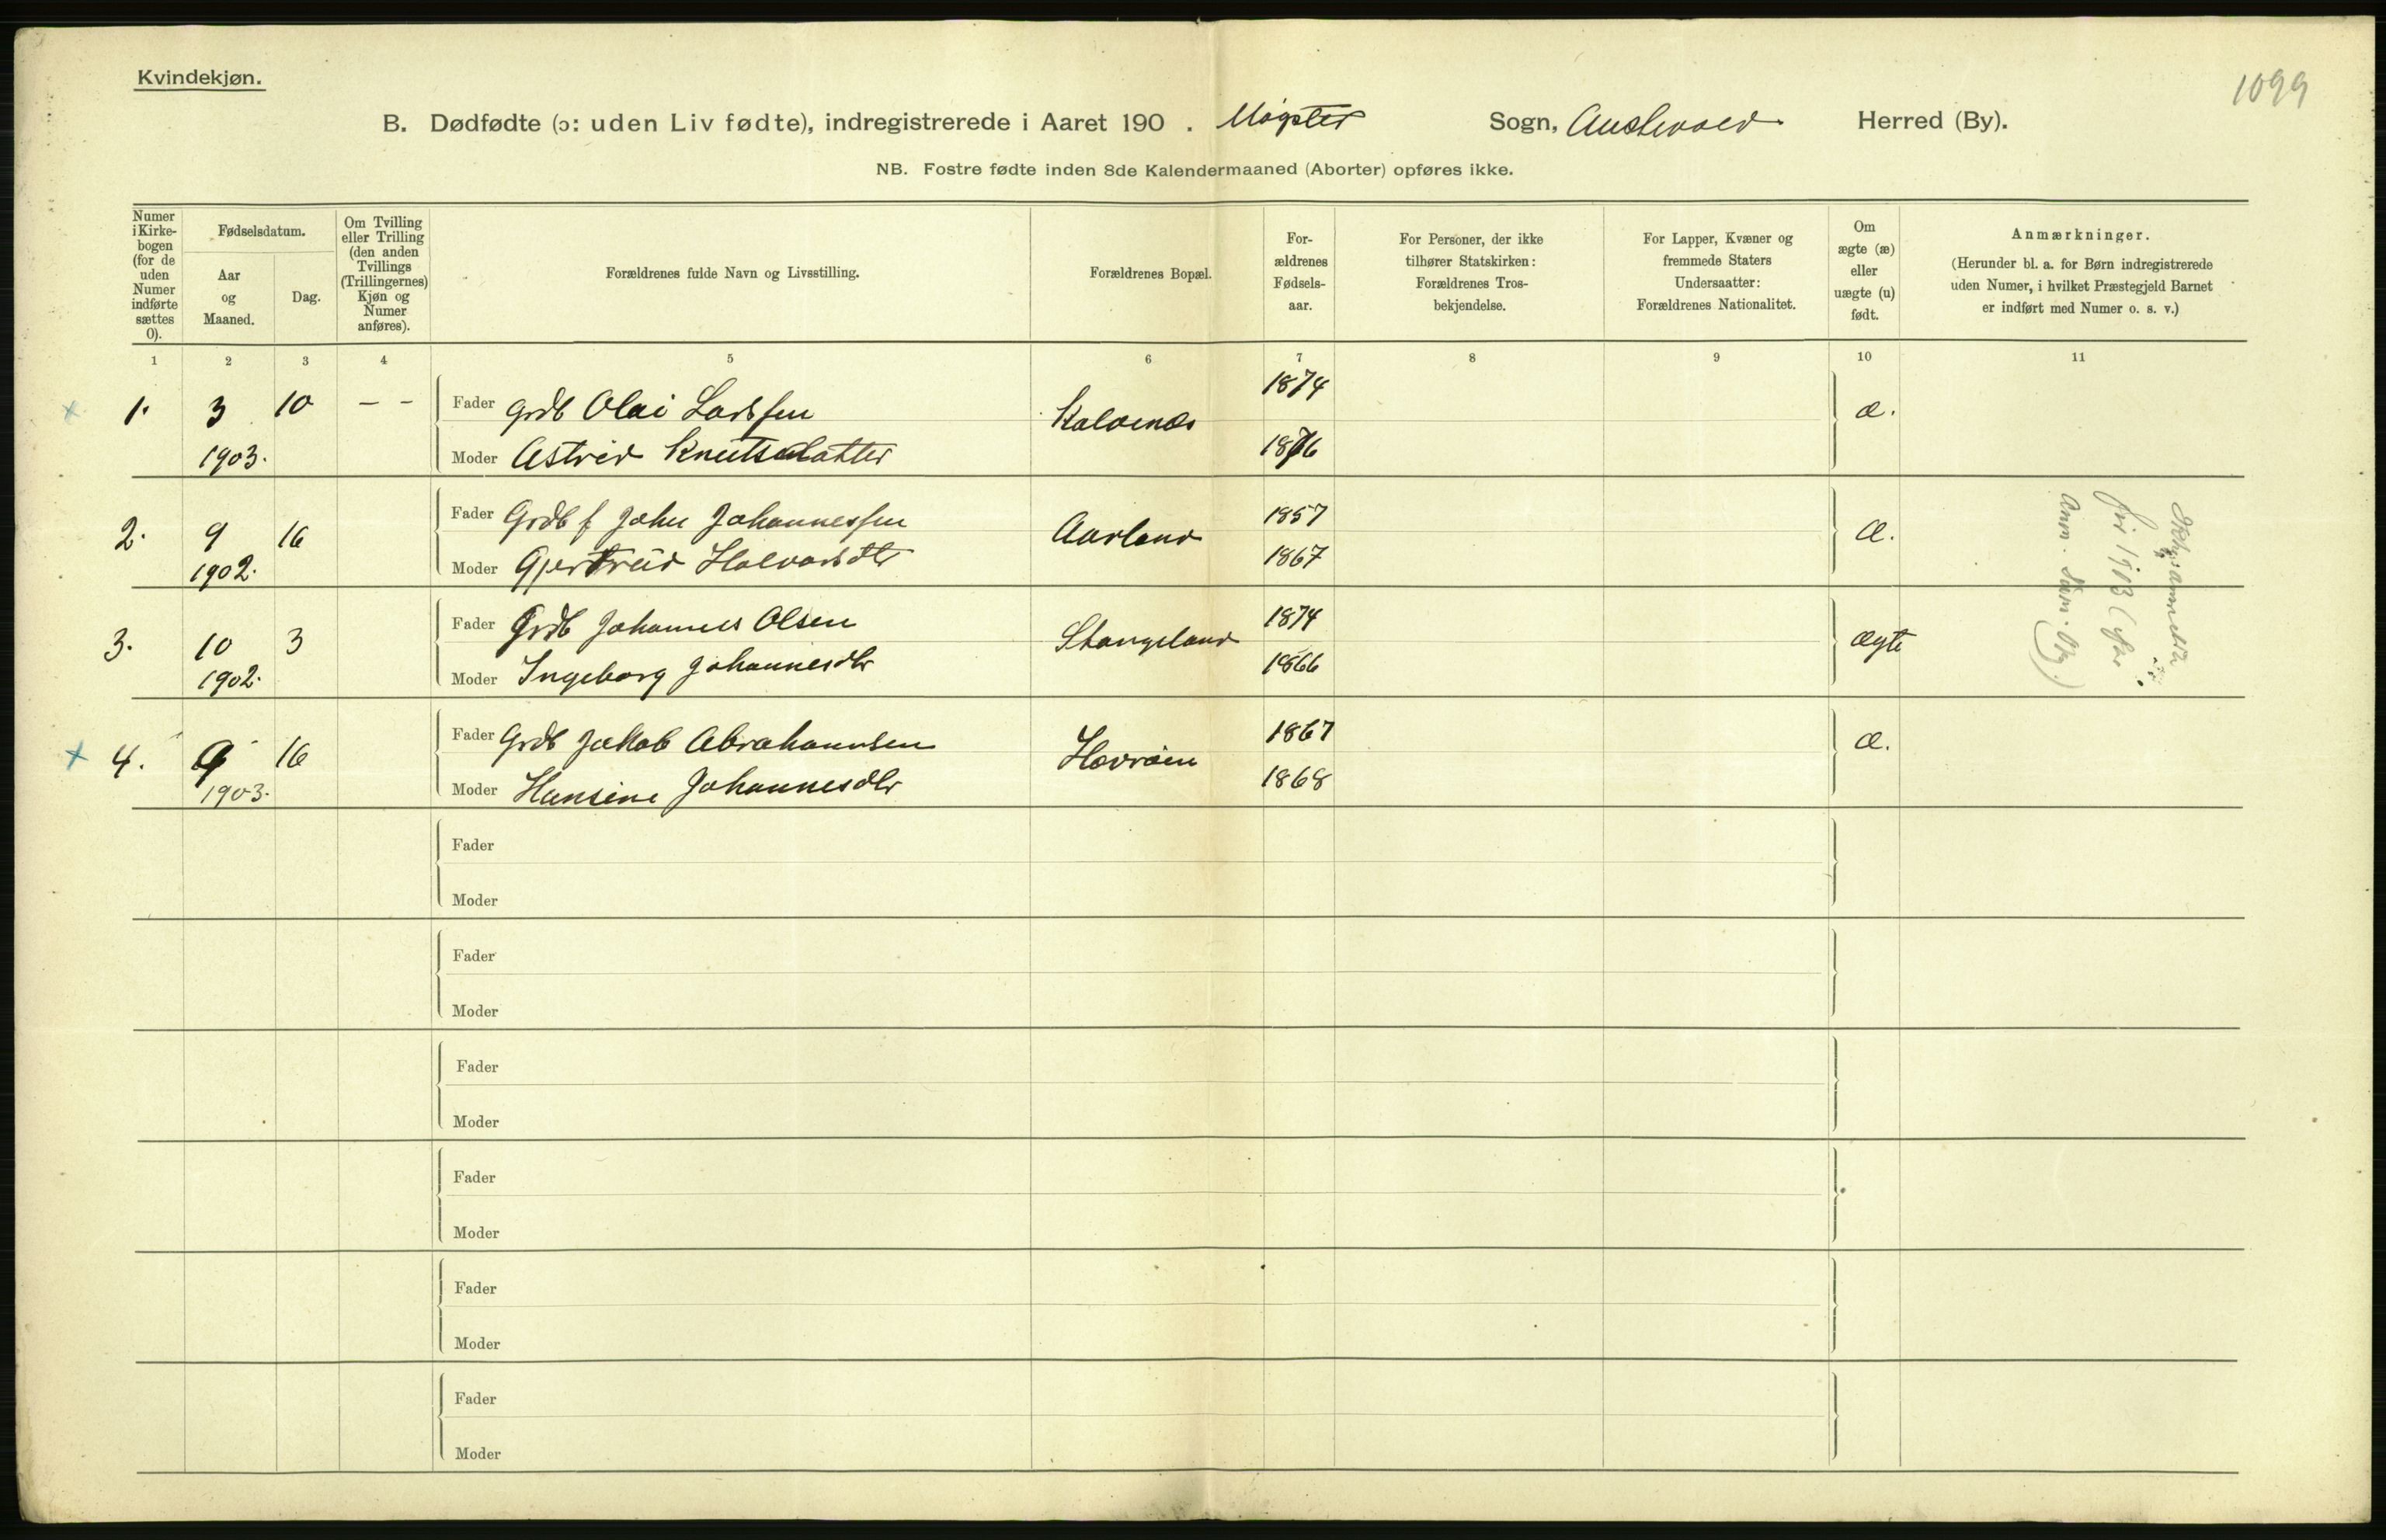 Kvindekjøn.
1099
B. Dødfødte (ɔ: uden Liv fødte), indregistrerede i Aaret 190 . Møgster Sogn, Austevold Herred (By).
NB. Fostre fødte inden 8de Kalendermaaned (Aborter) opføres ikke.
Numer i Kirkebogen (for de uden Numer indførte sættes 0).
Fødselsdatum.
Aar og Maaned.
Dag.
Om Tvilling eller Trilling (den anden Tvillings (Trillingernes) Kjøn og Numer anføres).
Forældrenes fulde Navn og Livsstilling.
Forældrenes Bopæl.
For-ældrenes Fødsels-aar.
For Personer, der ikke tilhører Statskirken: Forældrenes Tros-bekjendelse.
For Lapper, Kvæner og fremmede Staters Undersaatter: Forældrenes Nationalitet.
Om ægte (æ) eller uægte (u) født.
Anmærkninger.
(Herunder bl. a. for Børn indregistrerede uden Numer, i hvilket Præstegjeld Barnet er indført med Numer o. s. v.)
1 2 3 4 5 6 7 8 9 10 11
x 1. 3 10 – – Fader Grdb Olai Larssen Kalvenæs 1874 æ.
1903. Moder Astrid Knutsdatter 1876
2. 9 16 Fader Grdb f John Johannessen Aarland 1857 æ.
1902. Moder Gjertrud Halvorsdtr 1867
3. 10 3 Fader Grdb Johannes Olsen Stangeland 1874 ægte
1902. Moder Ingeborg Johannesdtr 1866
x 4. 9 16 Fader Grdb Jakob Abrahamsen Hovrøen 1867 æ.
1903. Moder Hansine Johannesdtr 1868
for 1903
Fader
Moder
Fader
Moder
Fader
Moder
Fader
Moder
Fader
Moder
Fader
Moder